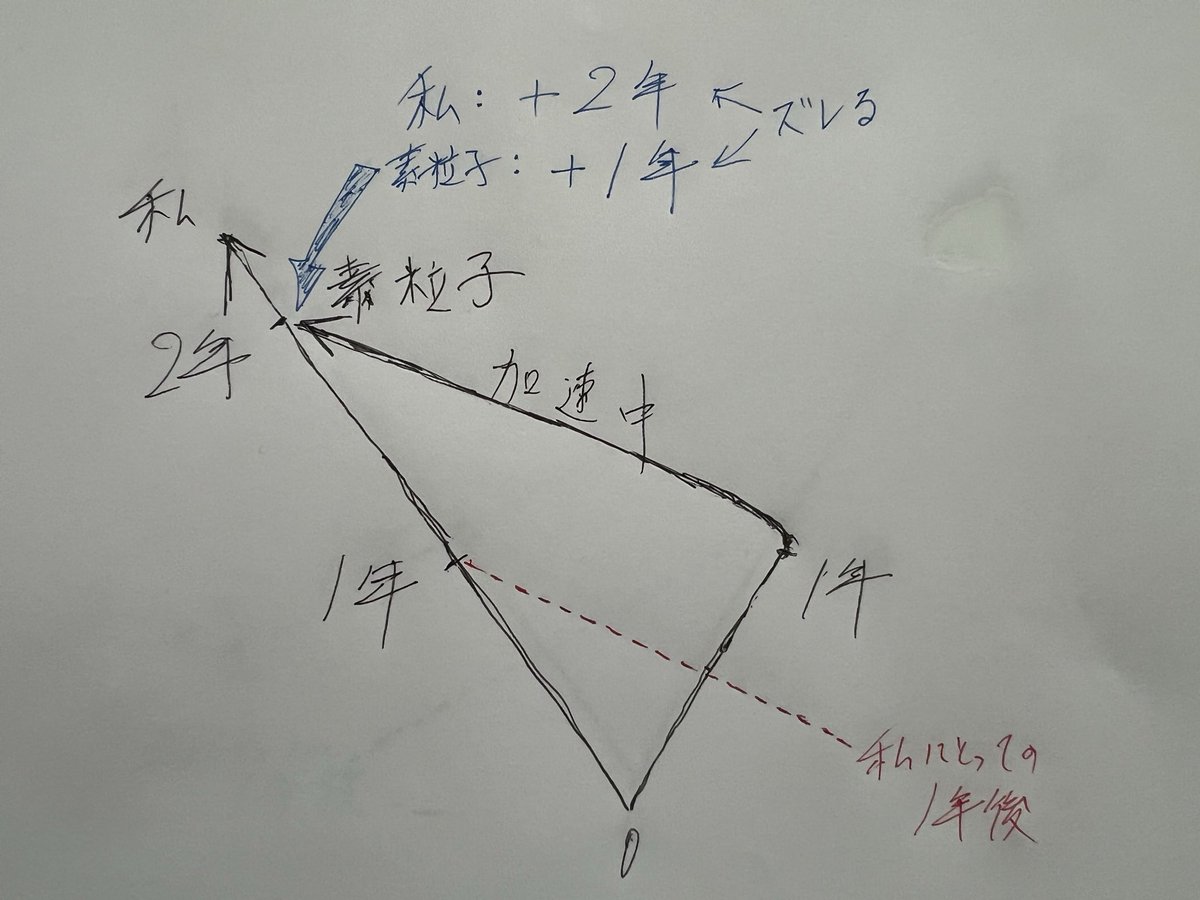 私: +2年 ズレる
素粒子: +1年
私
素粒子
2年
加速中
1年
1年
私にとっての
1年後
0